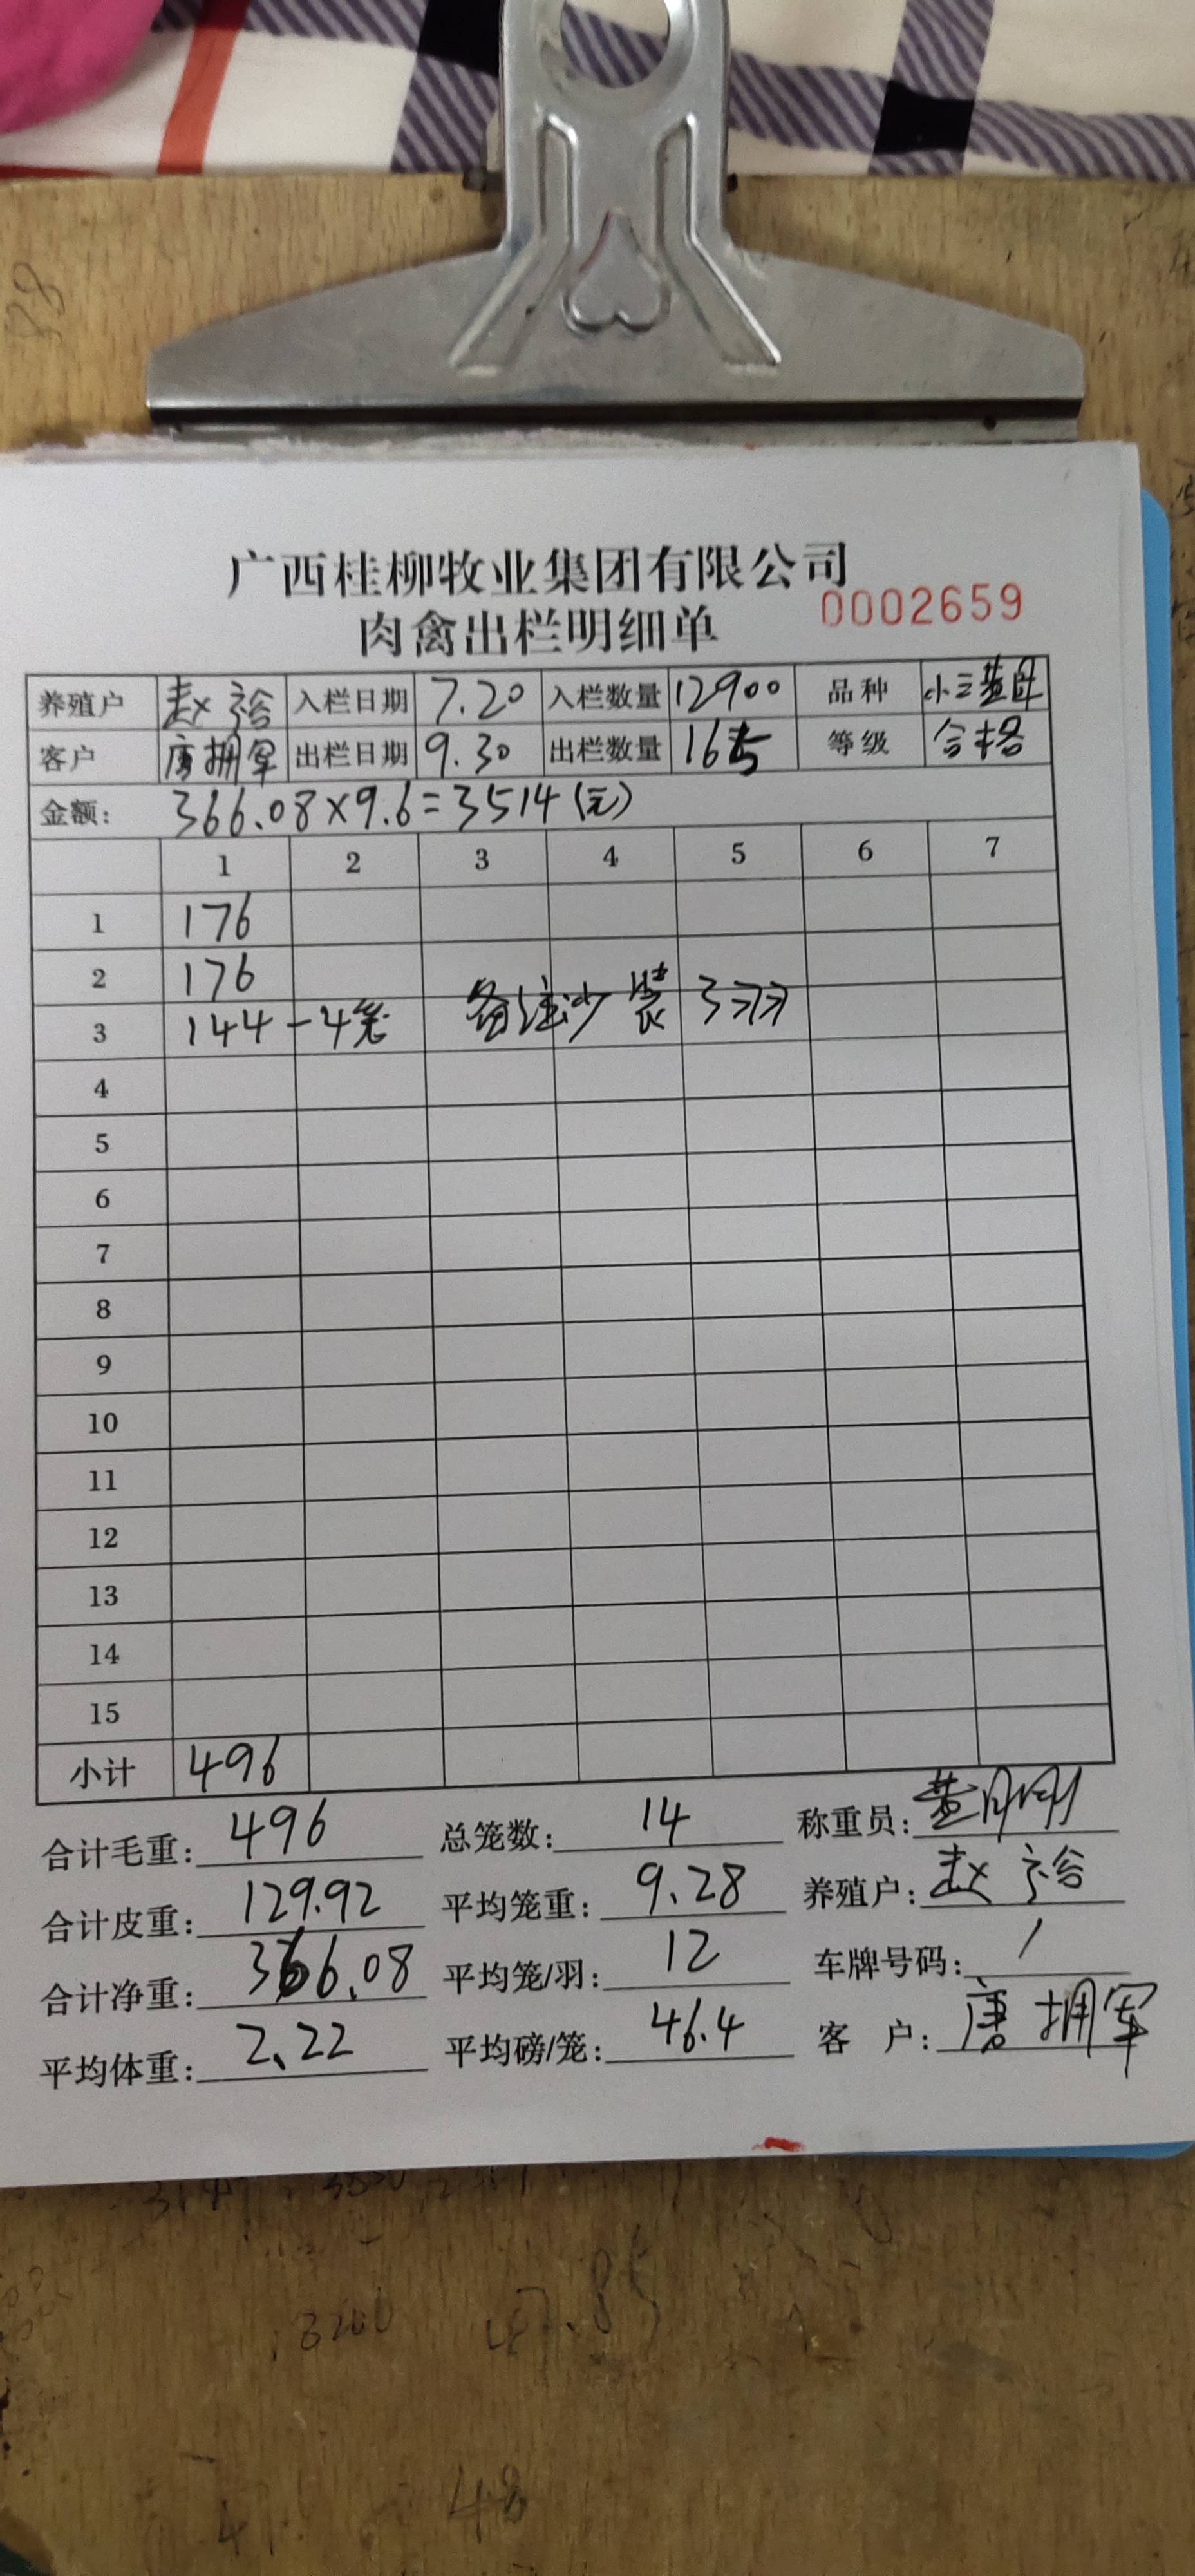 广西桂柳牧业集团有限公司
肉禽出栏明细单 0002659
养殖户 赵裕 入栏日期 7.20 入栏数量 12900 品种 小三黄母
客户 唐拥军 出栏日期 9.30 出栏数量 165 等级 合格
金额: 366.08×9.6=3514(元)
1 2 3 4 5 6 7
1 176
2 176
3 144-4笼 备注少装3羽
4
5
6
7
8
9
10
11
12
13
14
15
小计 496
合计毛重: 496 总笼数: 14 称重员: 黄
合计皮重: 129.92 平均笼重: 9.28 养殖户: 赵裕
合计净重: 366.08 平均笼/羽: 12 车牌号码: /
平均体重: 2.22 平均磅/笼: 46.4 客 户: 唐拥军
3200
48